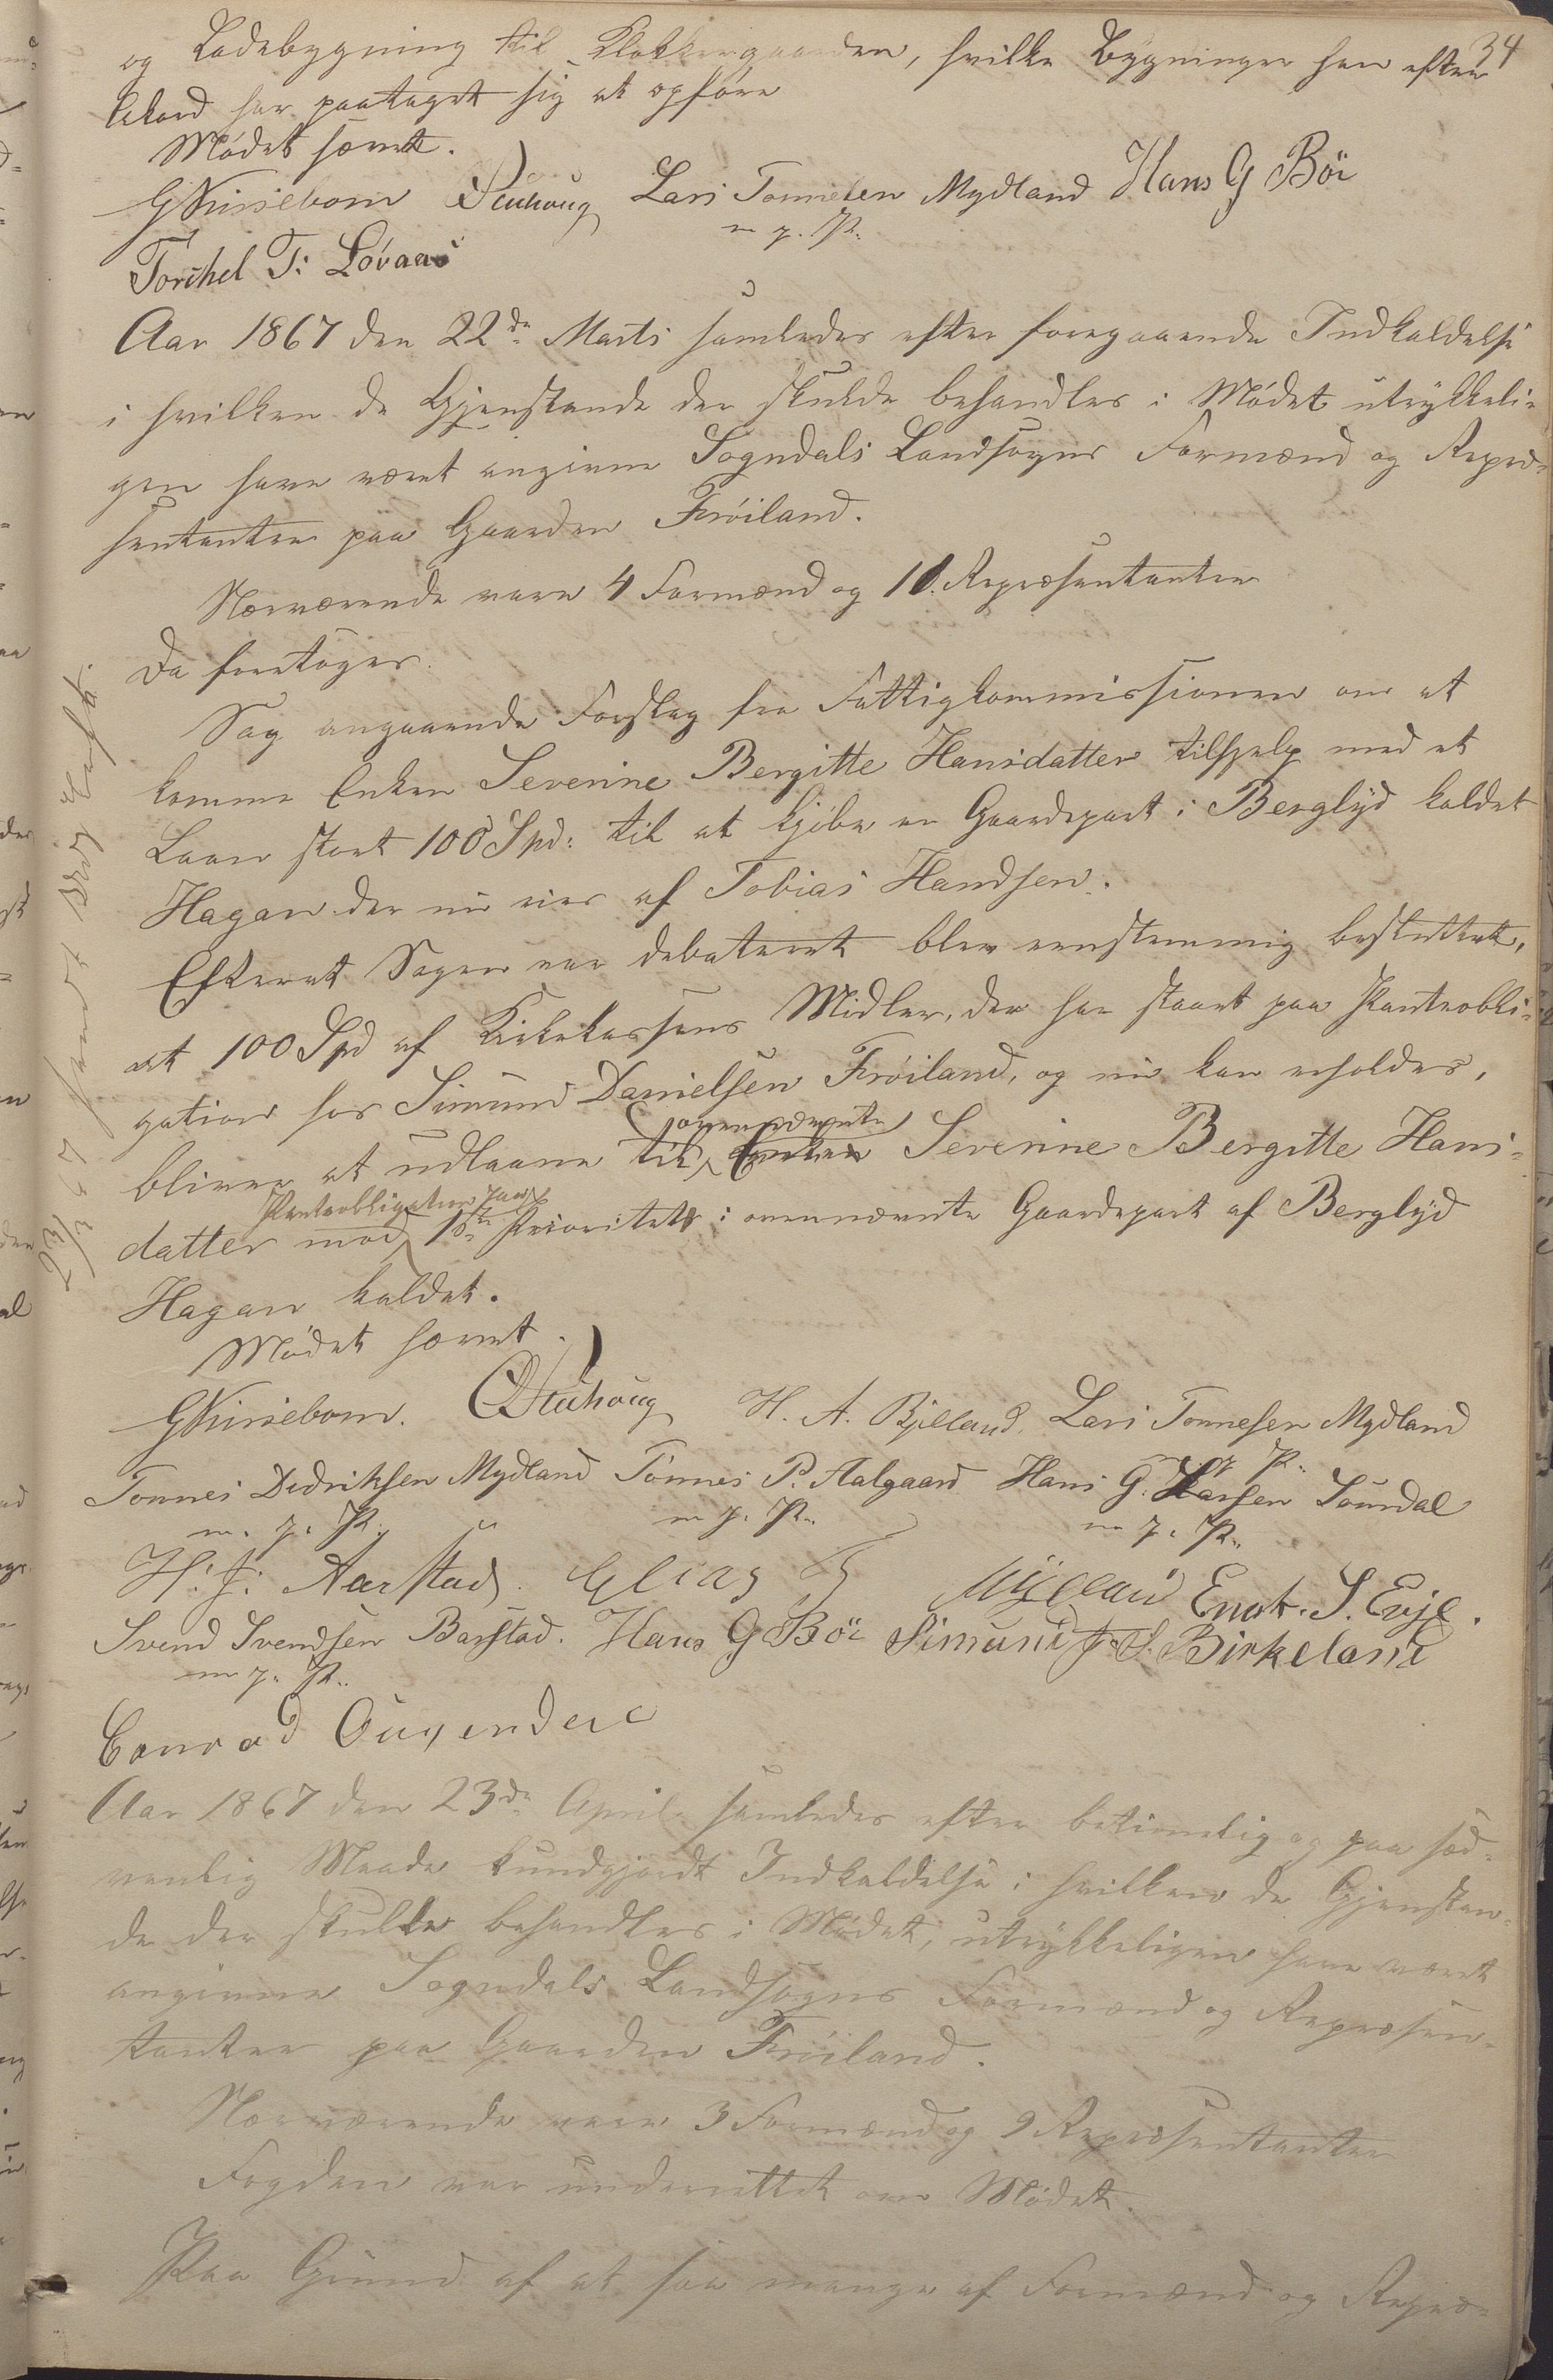 34
og Ladebygning til Klokkergaarden, hvilke Bygninger han efter
Akord har paataget sig at opføre
Mødet hævet.
G Kirsebom Stuhoug Lars Tonnesen Mydland Hans G Böe
m. p. P.
Torchel T: Lövaas
Aar 1867 den 22de Marts samledes efter foregaaende Indkaldelse
i hvilken de Gjenstande der skulde behandles i Mødet utrykkeli-
gen have været angivne Sogndals Landsogns Formænd og Repræ-
sentanter paa Gaarden Frøiland.
Nærværende vare 4 Formænd og 10. Repræsentanter
Da foretoges.
Sag angaaende Forslag fra Fattigkommissionen om at
komme Enken Severine Bergitte Hansdatter tilhjelp med et
Laan stort 100 Spd: til at kjøbe en Gaardepart i Berglyd kaldet
Hagan der nu eies af Tobias Handsen.
Efterat Sagen var debateret blev eenstemmig besluttet,
at 100 Spd af Kirkekassens Midler, der har staaet paa Panteobli-
gation hos Simund Danielsen Frøiland, og nu kan erholdes,
ovennævnte
bliver at udlaane til Enken Severine Bergitte Hans-
Panteobligation paa
datter mod 1ste Prioritet i ovennævnte Gaardepart af Berglyd
Hagan kaldet.
Mødet hævet.
G Kirsebom. O Stuhoug H. A. Bjelland. Lars Tonnesen Mydland
m. p. P.
Tonnes Didriksen Mydland Tönnes P. Aalgaard Hans G. Larsen Soundal
m. p. P. m. p. P. m. p. P.
H. J. Aarstad. Elias T Mydland Enok. S. Evje.
Svend Svendsen Barstad. Hans G Böe Simund J. S. Birkeland
m. p. P.
Conrad Ougendal
Aar 1867 den 23de April samledes efter betimelig og paa sæd-
vanlig Maade kundgjordt Indkaldelse i hvilken de Gjenstan-
de der skulde behandles i Mødet, utrykkeligen have været
angivne Sogndals Landsogns Formænd og Repræsen-
tanter paa Gaarden Frøiland.
Nærværende vare 3 Formænd og 9 Repræsentanter
Fogden var underrettet om Mødet.
Paa Grund af at saa mange af Formænd og Repræ-